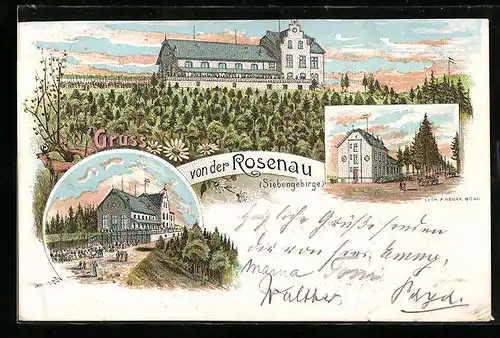 Gruss
von der Rosenau
(Siebengebirge)
LITH. A. HENRY, BONN.
Herzliche Grüße senden
die von hier Emmy,
Mama Toni
Walther